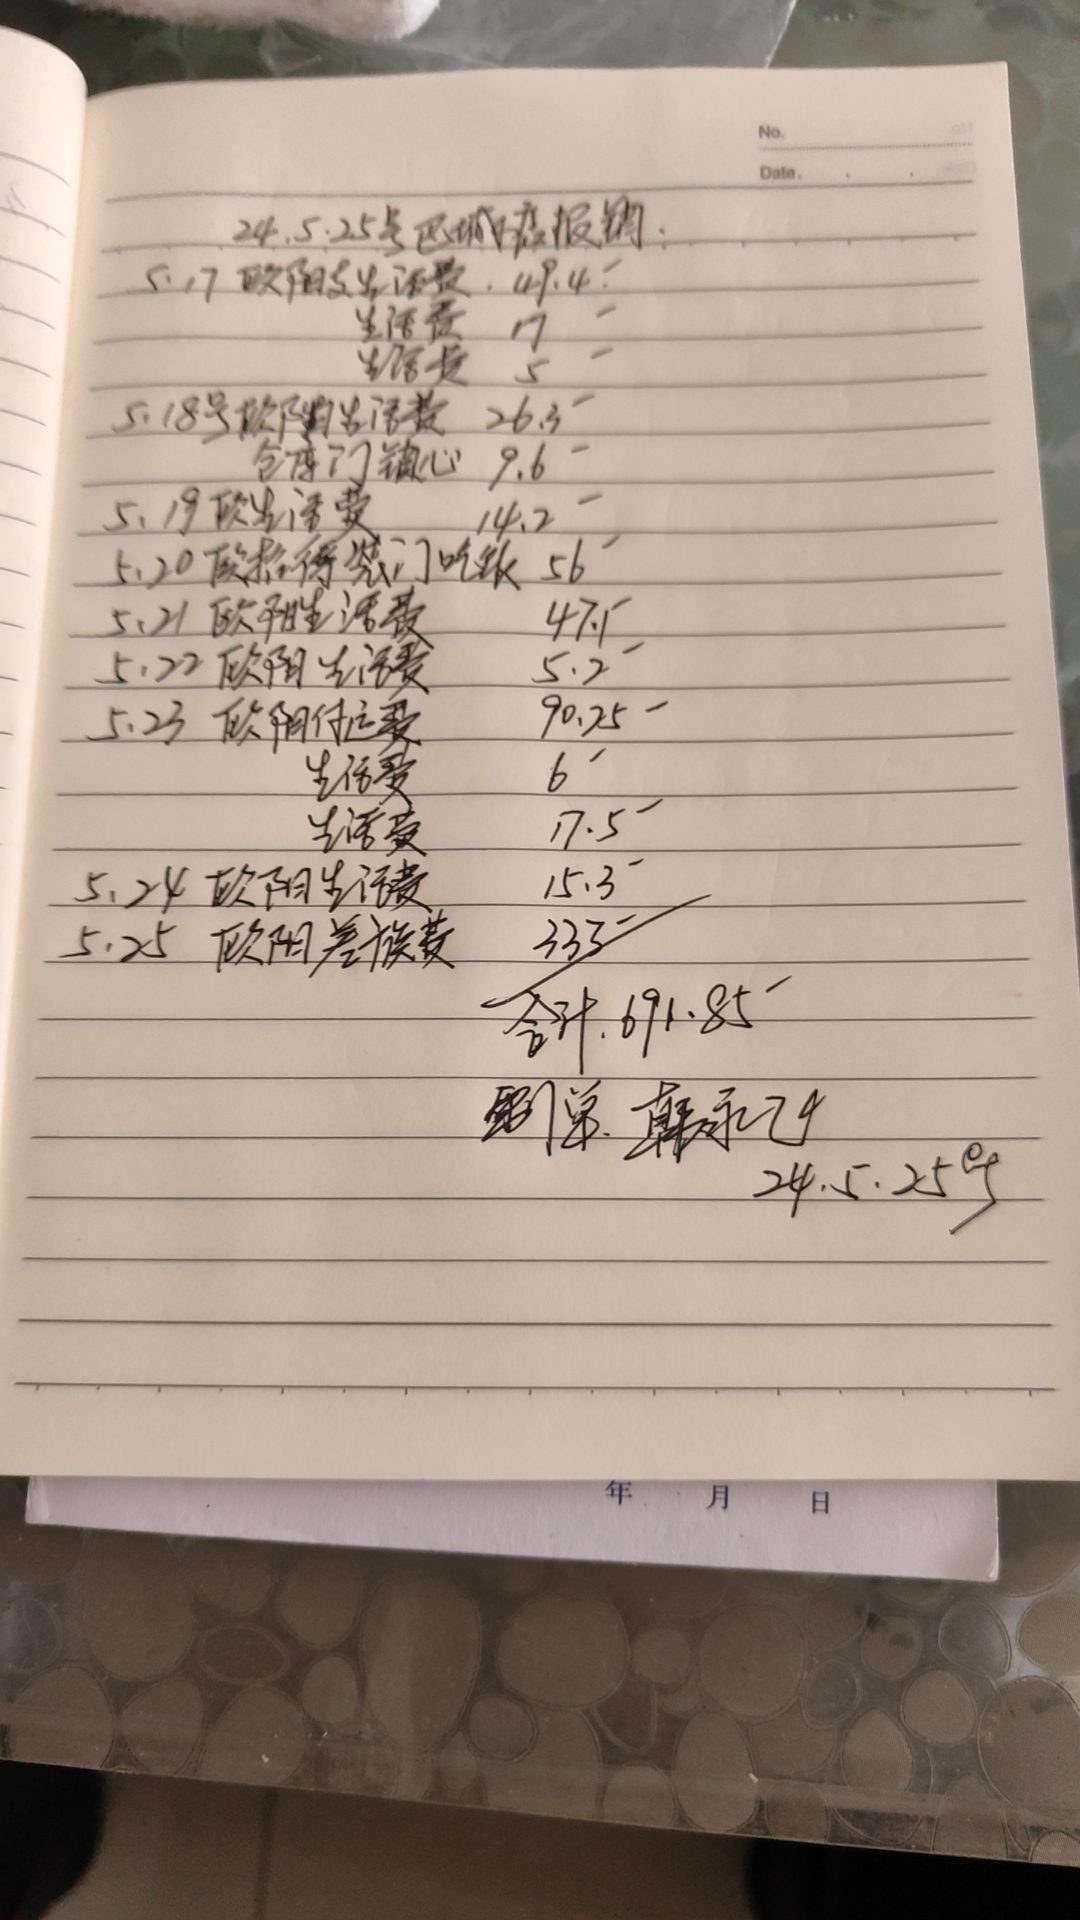 No.
Date.
24.5.25号 报销.
5.17 欧阳支生活费. 49.4
生活费 17
生活费 5
5.18号欧阳生活费 26.3
仓库门锁心 9.6
5.19 欧生活费 14.2
5.20 欧招待装门吃饭 56
5.21 欧阳生活费 47.1
5.22 欧阳生活费 5.2
5.23 欧阳付运费 90.25
生活费 6
生活费 17.5
5.24 欧阳生活费 15.3
5.25 欧阳差旅费 333
合计.691.85
24.5.25号
年 月 日